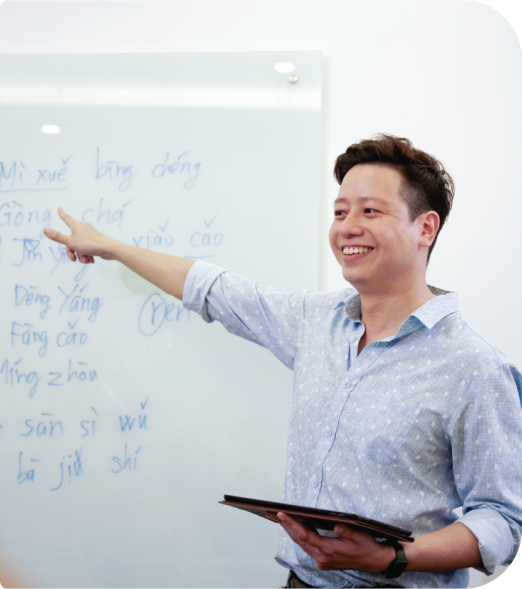 Mì xuě bīng chéng
Gòng chá
Jīn Yíng xiǎo cǎo
Dēng Yáng ren
Fāng cǎo
Míng zhōu
sān sì wǔ
bā jiǔ shí